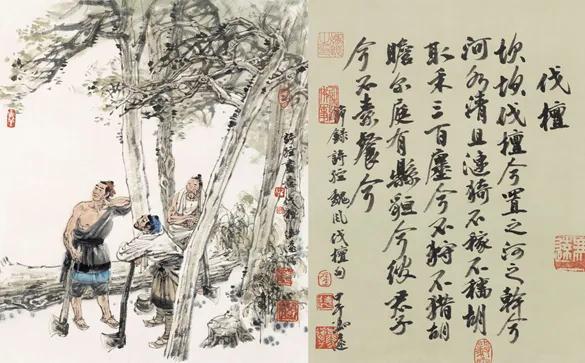 伐檀
坎坎伐檀兮置之河之幹兮
河水清且漣猗不稼不穡胡
取禾三百廛兮不狩不猎胡
瞻尔庭有縣貆兮彼君子
兮不素餐兮
節錄詩經魏風伐檀句
甲午